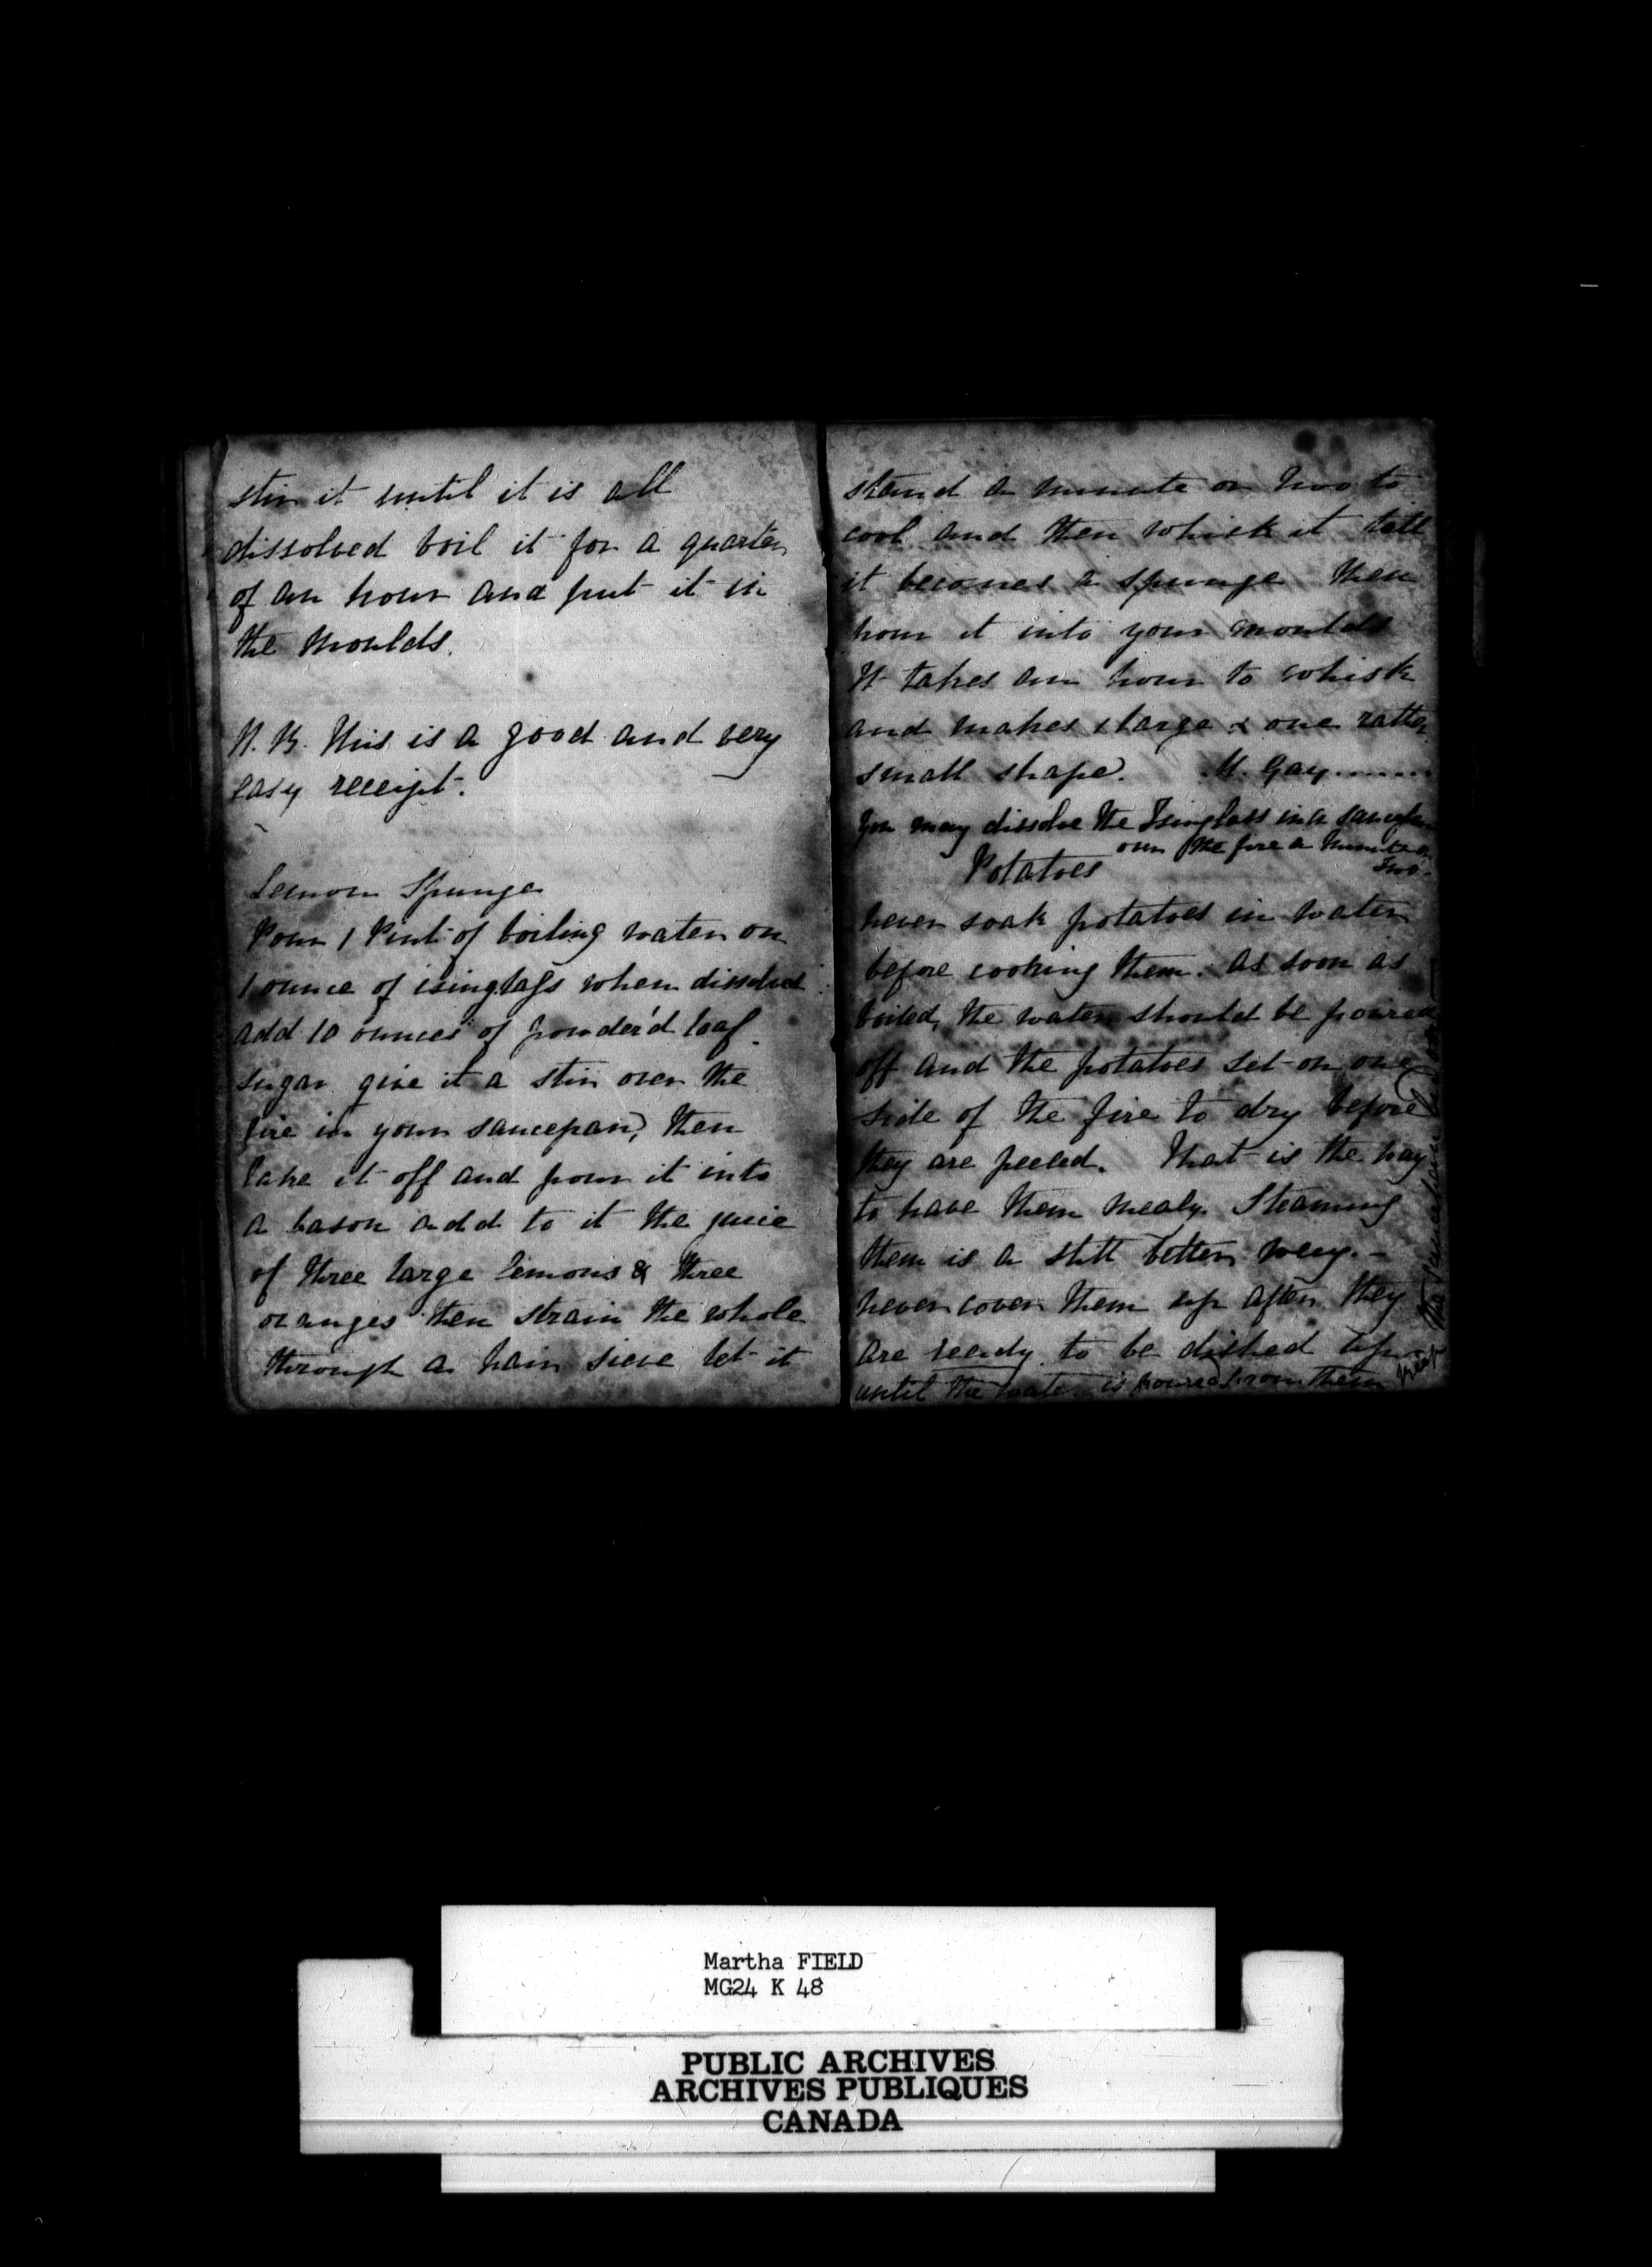 stir it until it is all
dissolved boil it for a quarter
of an hour and put it in
the moulds.
N.B. This is a good and very
easy receipt.
Lemon Spunge
Pour 1 Pint of boiling water on
1 ounce of isinglass when dissolved
add 10 ounces of powder'd loaf
sugar give it a stir over the
fire in your saucepan, then
take it off and pour it into
a bason add to it the juice
of three large lemons & three
oranges then strain the whole
through a hair sieve let it
stand a minute or two to
cool and then whisk it till
it becomes a spunge then
pour it into your moulds
It takes an hour to whisk
and makes 1 large & one rather
small shape. M. Gay.......
You may dissolve the Isinglass in a saucepan
over the fire a minute or
two.
Potatoes
never soak potatoes in water
before cooking them. As soon as
boiled, the water should be poured
off and the potatoes set on one
side of the fire to dry before
they are peeled. That is the way
to have them mealy. Steaming
them is a still better way. -
never cover them up after they
are ready to be dished up
until the water is poured from them
keep the saucepan
Martha FIELD
MG24 K 48
PUBLIC ARCHIVES
ARCHIVES PUBLIQUES
CANADA